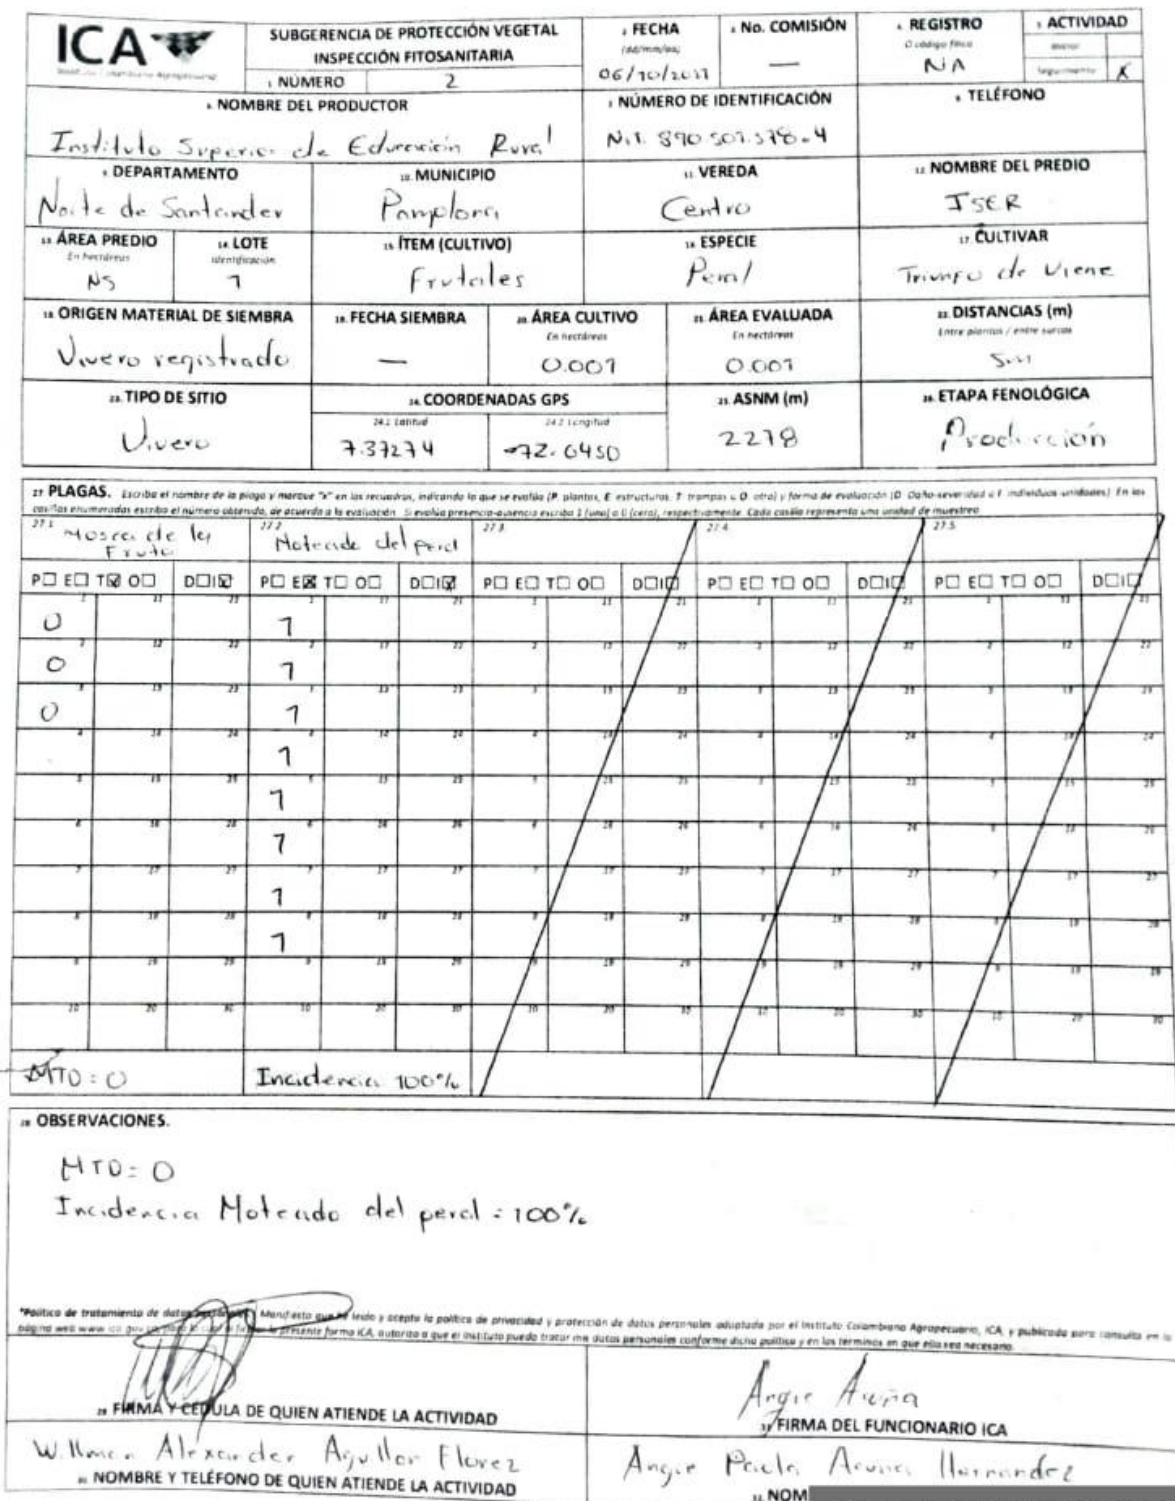 ICA
Instituto Colombiano Agropecuario
SUBGERENCIA DE PROTECCIÓN VEGETAL
INSPECCIÓN FITOSANITARIA
1. NÚMERO 2
2. FECHA
(dd/mm/aa)
06/10/2021
3. No. COMISIÓN
—
4. REGISTRO
O código finca
NA
5. ACTIVIDAD
Inicial
Seguimiento X
6. NOMBRE DEL PRODUCTOR
Instituto Superior de Educación Rural
7. NÚMERO DE IDENTIFICACIÓN
Nit. 890.501.578-4
8. TELÉFONO
9. DEPARTAMENTO
Norte de Santander
10. MUNICIPIO
Pamplona
11. VEREDA
Centro
12. NOMBRE DEL PREDIO
ISER
13. ÁREA PREDIO
En hectáreas
NS
14. LOTE
Identificación
1
15. ÍTEM (CULTIVO)
Frutales
16. ESPECIE
Peral
17. CULTIVAR
Triunfo de Viene
18. ORIGEN MATERIAL DE SIEMBRA
Vivero registrado
19. FECHA SIEMBRA
—
20. ÁREA CULTIVO
En hectáreas
0.001
21. ÁREA EVALUADA
En hectáreas
0.001
22. DISTANCIAS (m)
Entre plantas / entre surcos
5m
23. TIPO DE SITIO
Vivero
24. COORDENADAS GPS
24.1 Latitud
7.37274
24.2 Longitud
-72.6450
25. ASNM (m)
2278
26. ETAPA FENOLÓGICA
Producción
27. PLAGAS. Escriba el nombre de la plaga y marque "x" en los recuadros, indicando lo que se evalúa (P. plantas, E. estructuras, T. trampas u O. otro) y forma de evaluación (D. Daño-severidad o I. individuos-unidades). En las
casillas enumeradas escriba el número obtenido, de acuerdo a la evaluación. Si evalúa presencia-ausencia escriba 1 (uno) o 0 (cero), respectivamente. Cada casilla representa una unidad de muestreo.
27.1 Mosca de la Fruta
27.2 Moteado del peral
27.3
27.4
27.5
P☐ E☐ T☒ O☐ D☐ I☒ P☐ E☒ T☐ O☐ D☐ I☒ P☐ E☐ T☐ O☐ D☐ I☐ P☐ E☐ T☐ O☐ D☐ I☐ P☐ E☐ T☐ O☐ D☐ I☐
0 1
0 1
0 1
1
1
1
1
1
MTD = 0
Incidencia 100%
28. OBSERVACIONES.
MTD = 0
Incidencia Moteado del peral = 100%
*Política de tratamiento de datos Manifiesto que he leído y acepto la política de privacidad y protección de datos personales adoptada por el Instituto Colombiano Agropecuario, ICA, y publicada para consulta en la
página web www.ica.gov.co la presente forma ICA, autorizo a que el instituto pueda tratar mis datos personales conforme dicha política y en los términos en que ella sea necesario.
29. FIRMA Y CÉDULA DE QUIEN ATIENDE LA ACTIVIDAD
Angie Acuña
31. FIRMA DEL FUNCIONARIO ICA
Alexander Florez
30. NOMBRE Y TELÉFONO DE QUIEN ATIENDE LA ACTIVIDAD
Angie Paola Acuña Hernandez
32. NOM